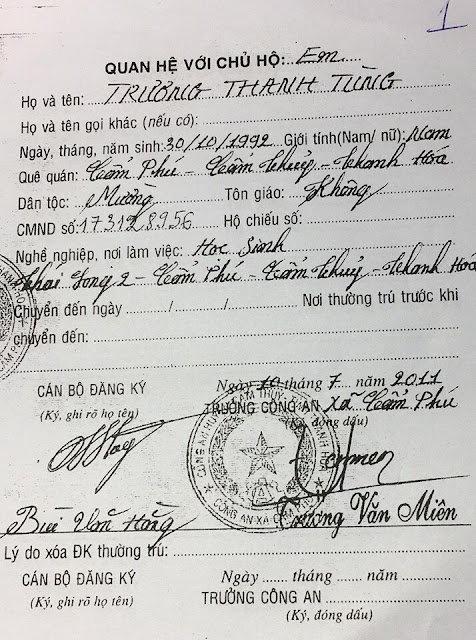 1
QUAN HỆ VỚI CHỦ HỘ: Em
Họ và tên: TRƯƠNG THANH TÙNG
Họ và tên gọi khác (nếu có):
Ngày, tháng, năm sinh: 30/10/1992 Giới tính (Nam/ nữ): Nam
Quê quán: Cẩm Phú - Cẩm Thuỷ - Thanh Hóa
Dân tộc: Mường Tôn giáo: Không
CMND số: 173128956 Hộ chiếu số:
Nghề nghiệp, nơi làm việc: Học Sinh
Thái Long 2 - Cẩm Phú - Cẩm Thuỷ - Thanh Hóa
Chuyển đến ngày ....../....../...... Nơi thường trú trước khi
chuyển đến:
CÁN BỘ ĐĂNG KÝ Ngày 10 tháng 7 năm 2011
(Ký, ghi rõ họ tên) TRƯỞNG CÔNG AN xã Cẩm Phú
(Ký, đóng dấu)
Bùi Văn Hằng Trương Văn Miên
Lý do xóa ĐK thường trú:
CÁN BỘ ĐĂNG KÝ Ngày ...... tháng ...... năm ......
(Ký, ghi rõ họ tên) TRƯỞNG CÔNG AN
(Ký, đóng dấu)